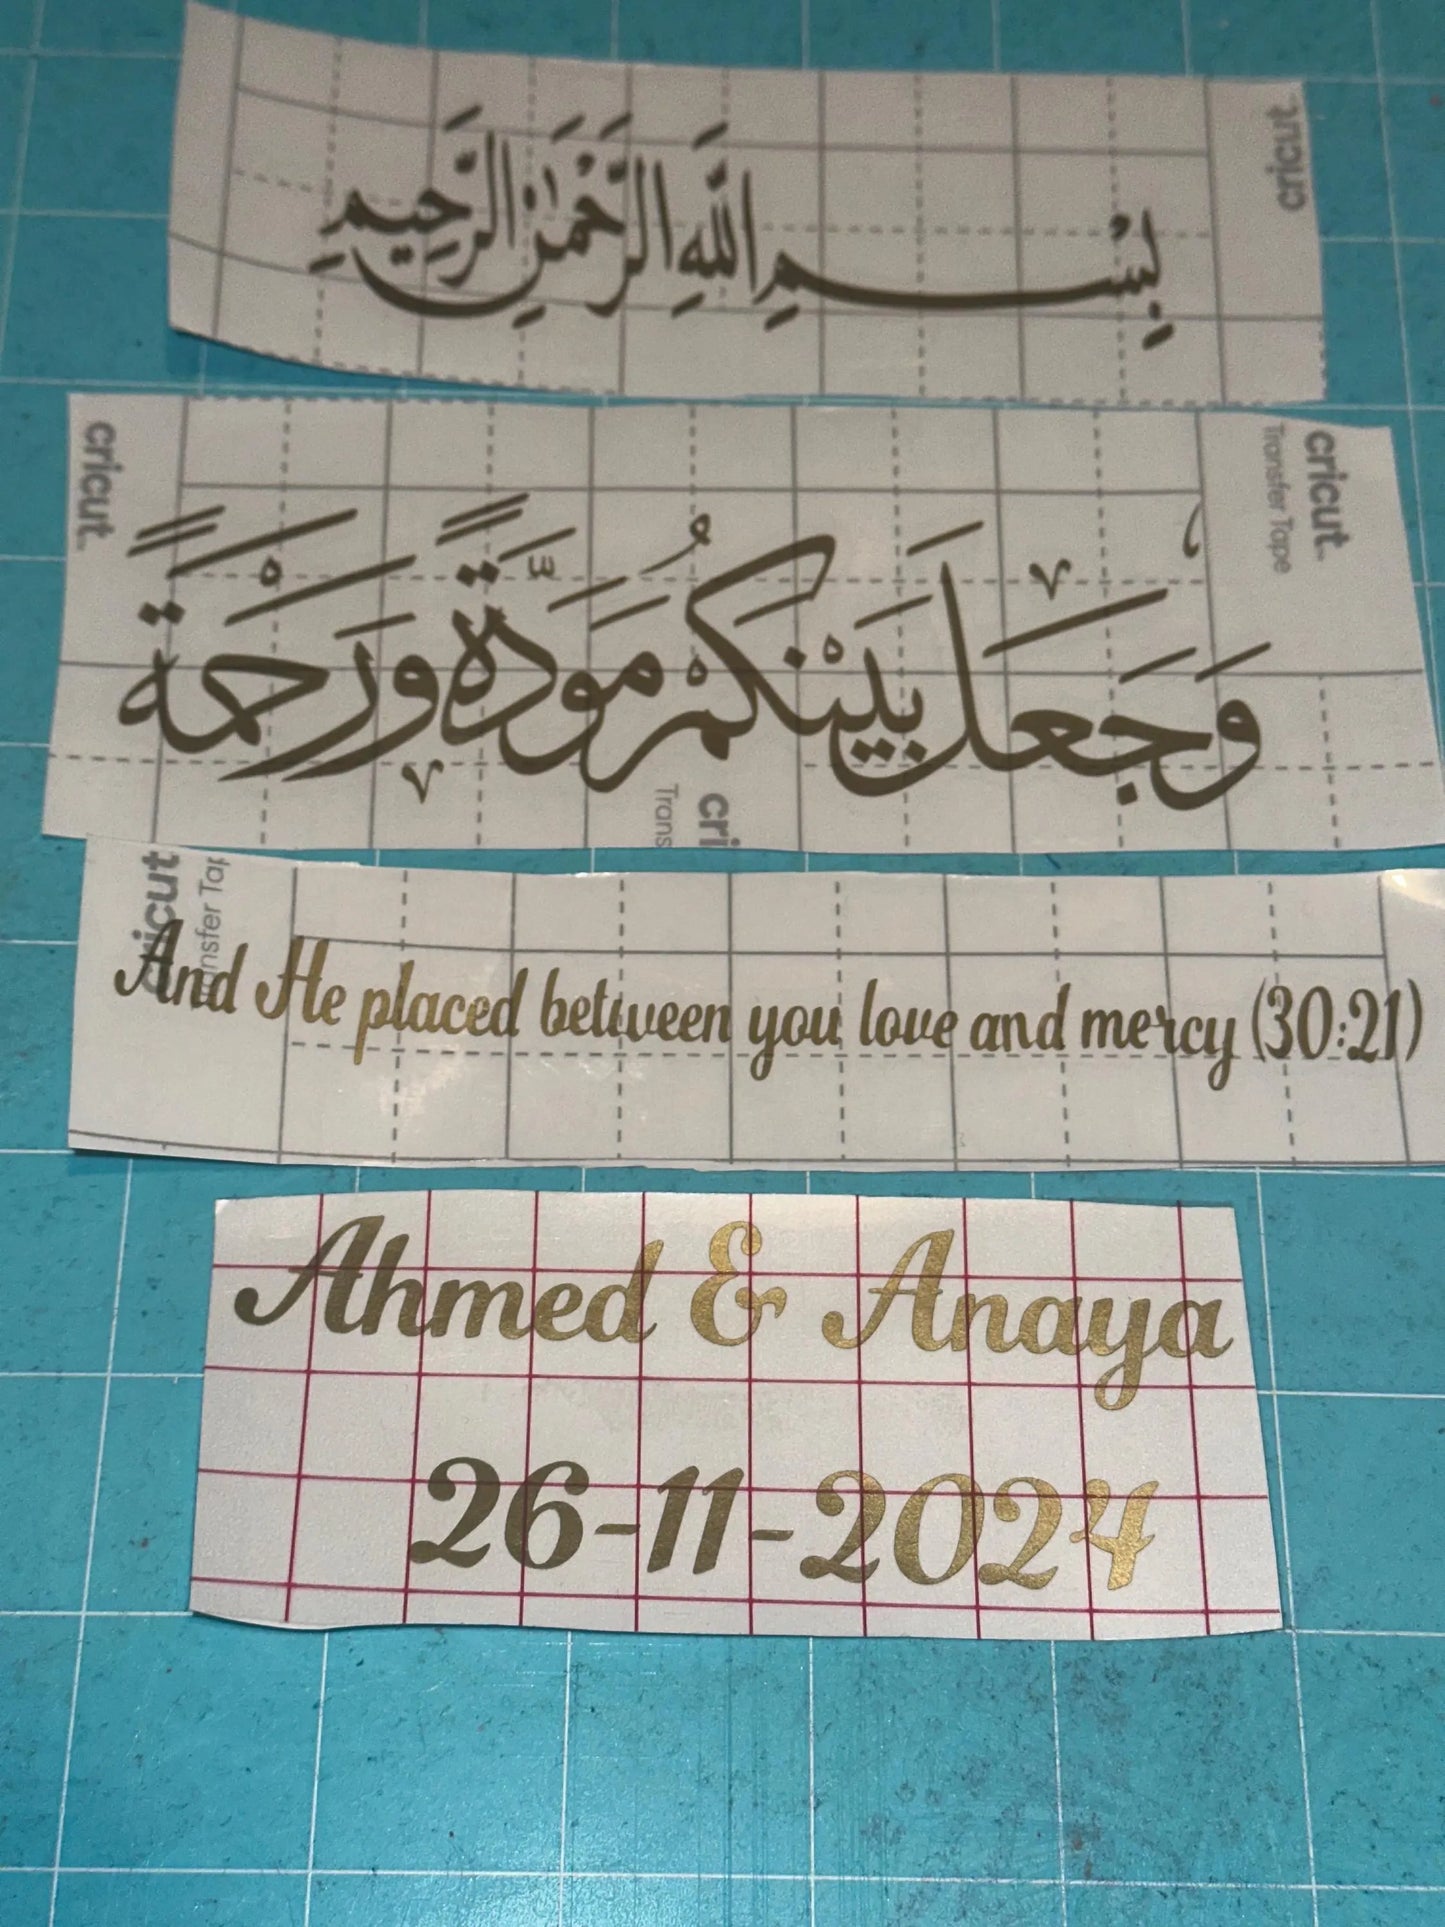 cricut
بِسْمِ اللَّهِ الرَّحْمَٰنِ الرَّحِيمِ
cricut
cricut
Transfer Tape
وَجَعَلَ بَيْنَكُمْ مَوَدَّةً وَرَحْمَةً
Trans
cri
cricut
ansfer Tap
And He placed between you love and mercy (30:21)
Ahmed & Anaya
26-11-2024